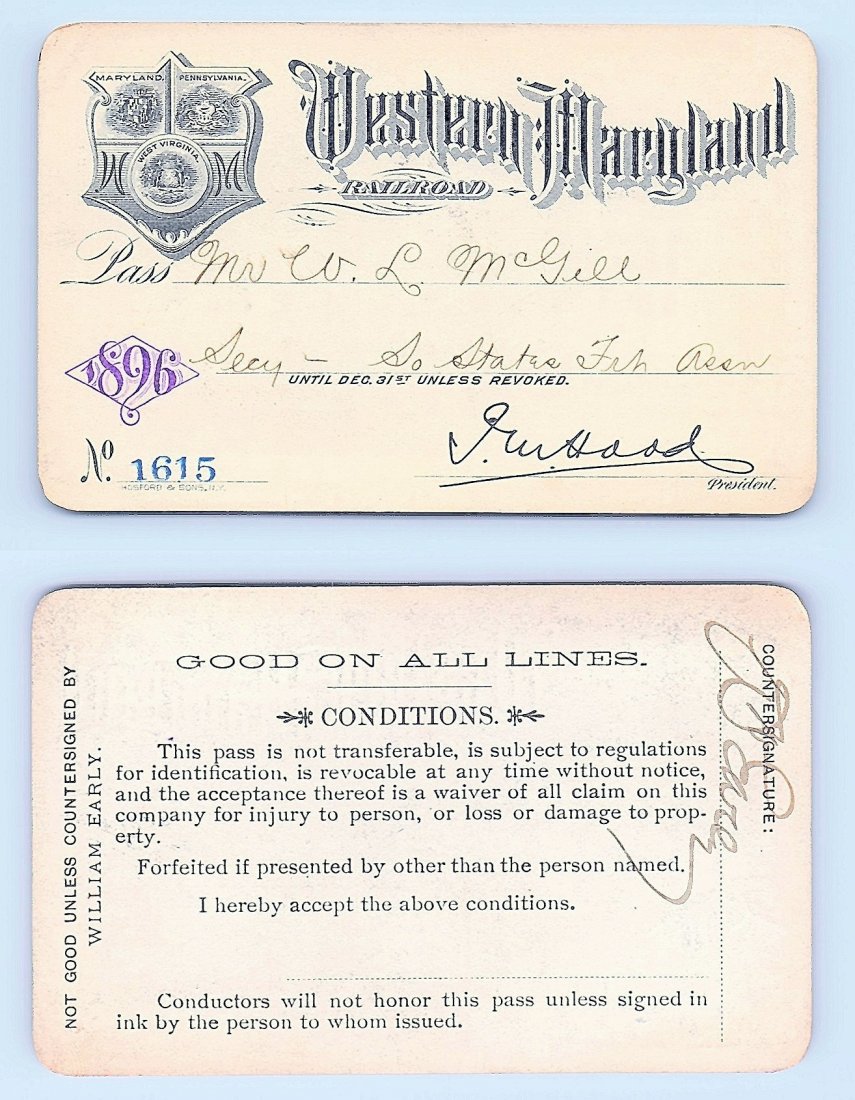 MARYLAND. PENNSYLVANIA.
WEST VIRGINIA.
W M
Western Maryland
RAILROAD
Pass Mr W. L. McGill
1896 Secy - So States Frt Assn
UNTIL DEC. 31ST UNLESS REVOKED.
No. 1615
HOSFORD & SONS, N.Y.
J. M. Hood
President.
NOT GOOD UNLESS COUNTERSIGNED BY
WILLIAM EARLY.
GOOD ON ALL LINES.
CONDITIONS.
This pass is not transferable, is subject to regulations
for identification, is revocable at any time without notice,
and the acceptance thereof is a waiver of all claim on this
company for injury to person, or loss or damage to prop-
erty.
Forfeited if presented by other than the person named.
I hereby accept the above conditions.
Conductors will not honor this pass unless signed in
ink by the person to whom issued.
COUNTERSIGNATURE:
Early